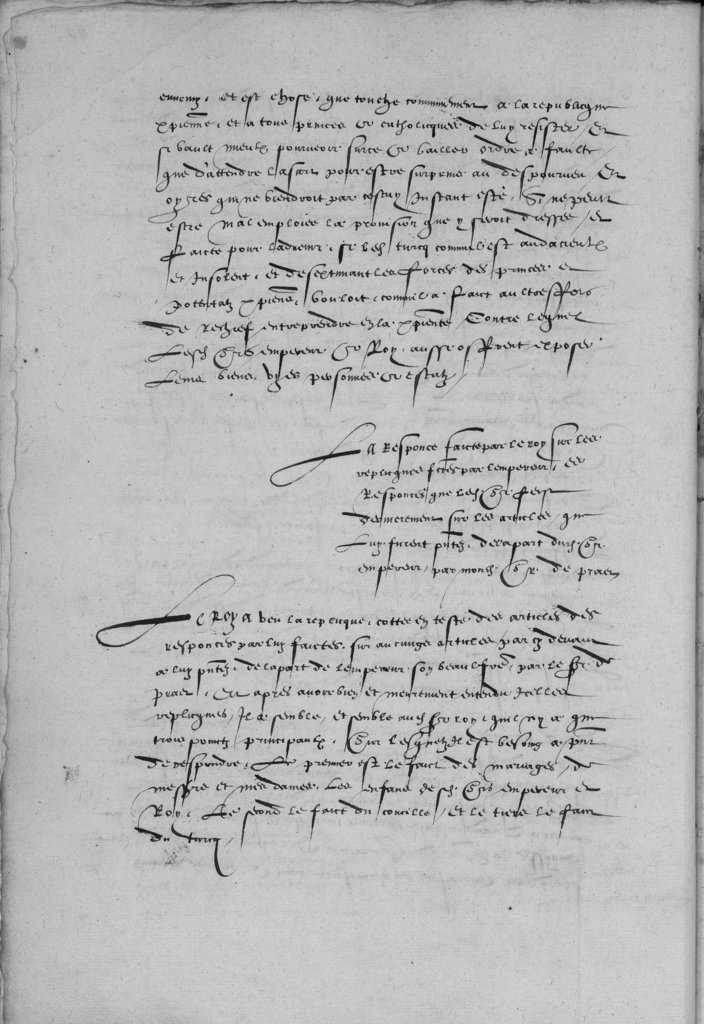 ennemy, et est chose, que touche communement a la republicque
xpienne, et a tous princes catholicques de luy resister, Et
si vault mieulx pourveoir surce et bailler ordre a faulte
que d'attendre la sarr pour estre surprins au despourveu, Et
ores que ne viendroit par cestuy Instant esté, Si ne peult
estre mal emploiee la provision que y seroit dressee, et
faicte pour ladvenir, se led. turcq comme il est audacieulx
et Insolent, et desextimant les forces des princes et
potentatz xpiens, vouloit, comme il a faict aultresfois
de rechief entreprendre en la xpienté, Contre lequel
Lesd. Srs empereur et Roy, aussi offrent exposer
leurs biens, vyes personnes et estatz,
La Responce faicte par le roy sur les
replicques fctes par lempereur, es
Responces que led. Sr. feist
dernierement sur les articles, que
Luy furent pntez, de la part dud. Sr.
empereur, par mond. Sr. de praet
Le Roy a veu la replicque, cottee en teste des articles des
responces par luy faictes, sur aucungs articles par cy devant
a luy pntez, de la part de lempereur, son beau frere, par le Sr. de
praet, Et apres avoir bien et meurement entendu Icelles
replicques, Il a semble, et semble aud. Sr roy, quil ny a que
trois poinctz principaulx, Sur lesquelz Il est besoing a pnt
de respondre, Le premier est le faict des mariages, de
messrs et mes dames, Les enfans desd. Srs empereur et
Roy, Le second le faict du concille, et le tiers le faict
du turcq,